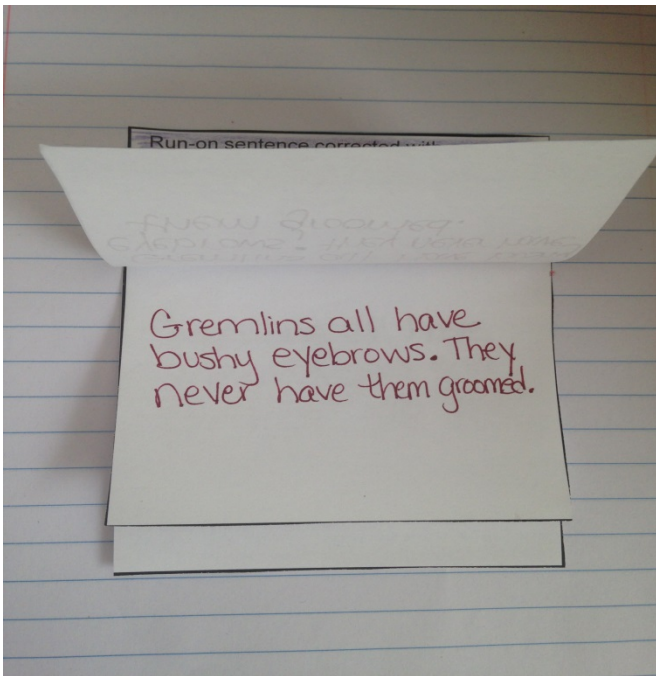 Run-on sentence corrected with
Gremlins all have
bushy eyebrows. They
never have them groomed.